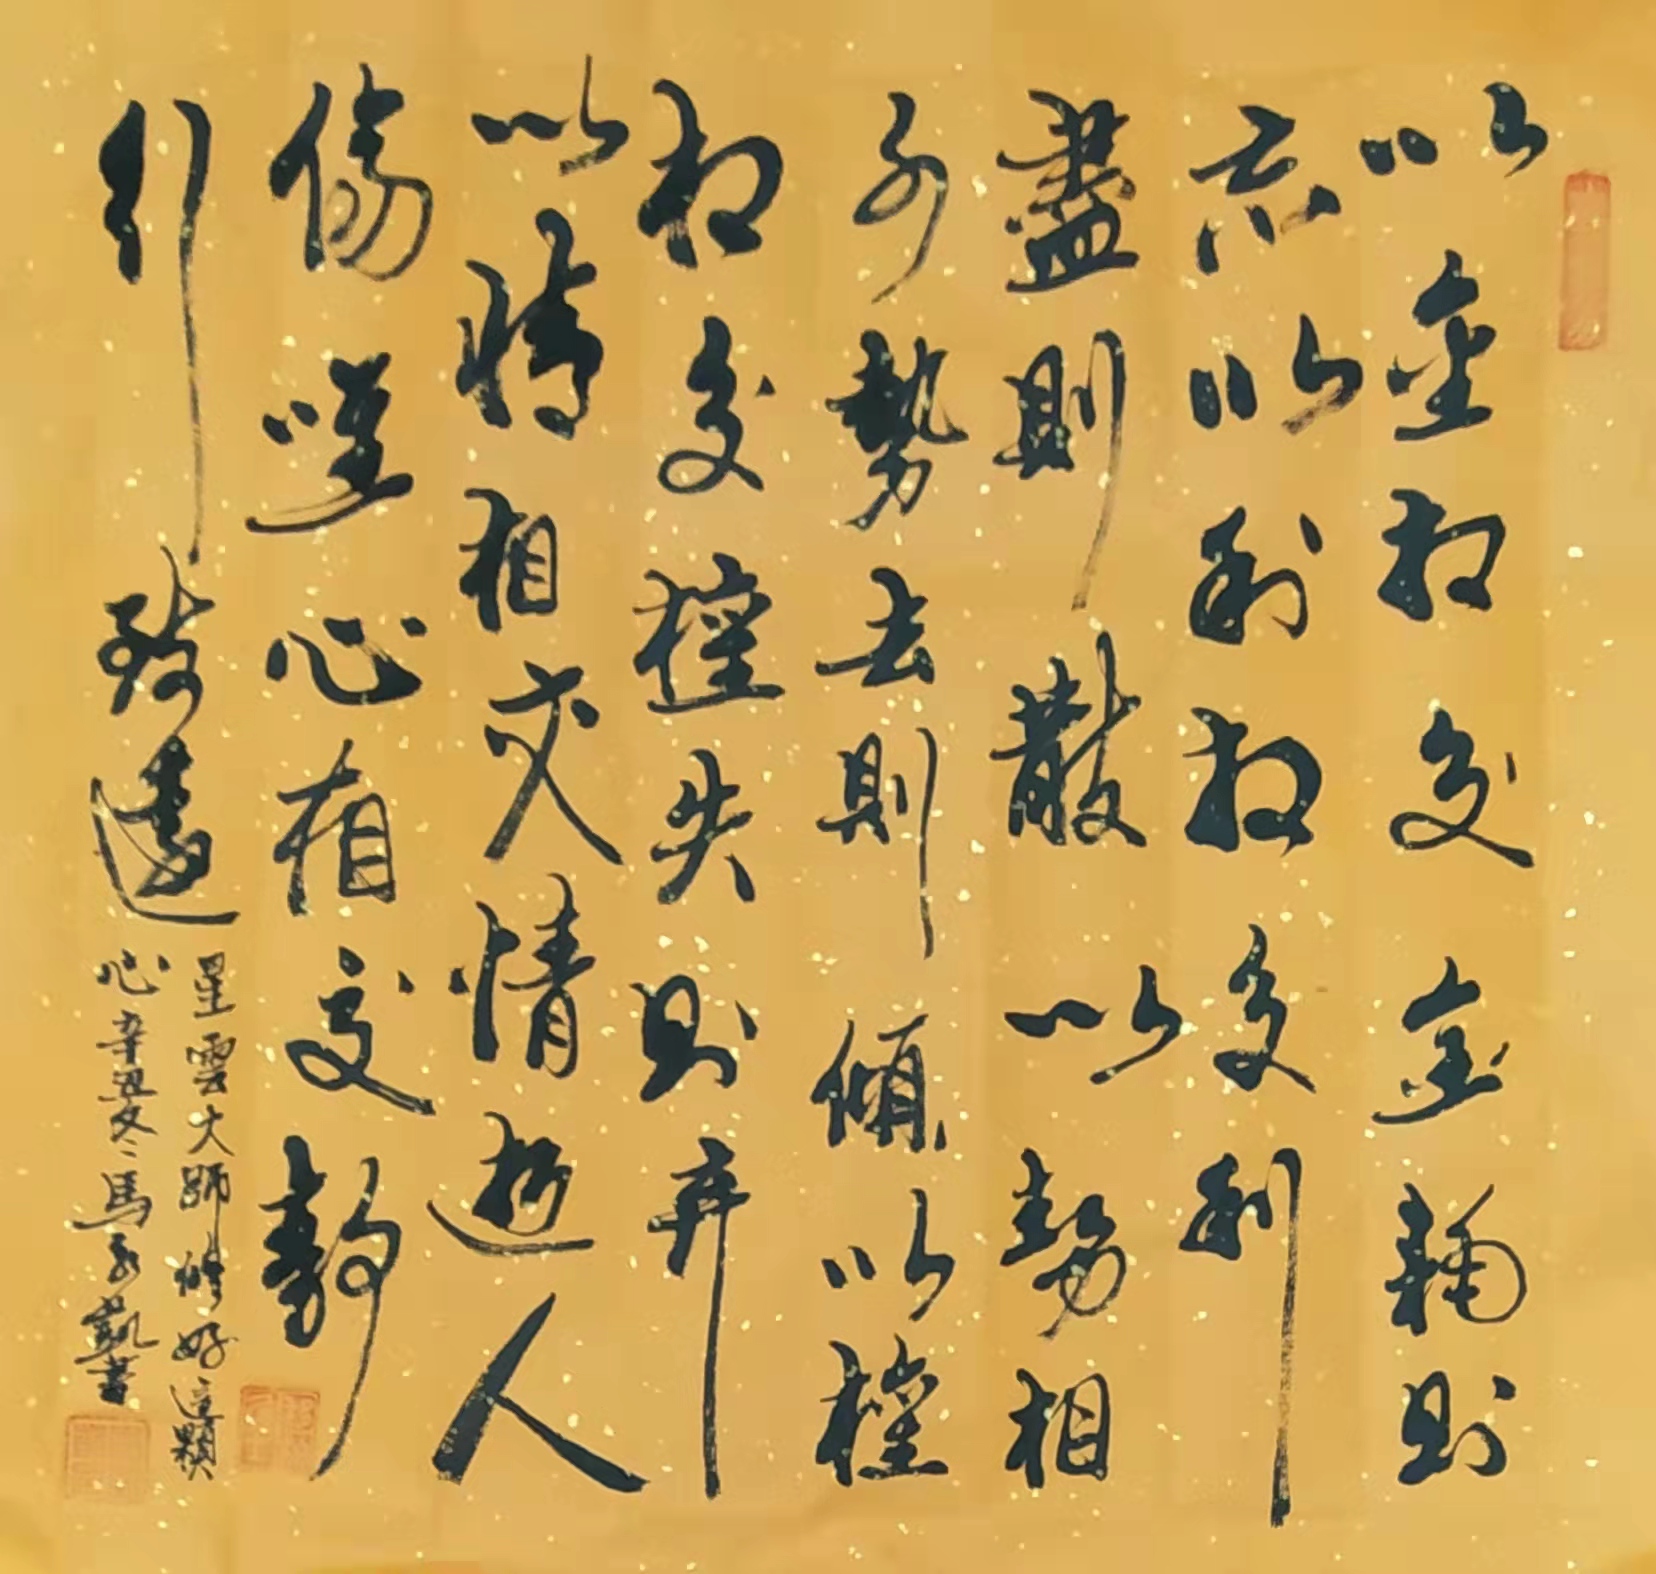 以金相交金則
以利相交利
盡則散以勢相
交勢去則傾以權
相交權失則弃
以情相交情逝人
傷唯心相交靜
行致遠
星雲大師修好這顆
心辛丑冬馬凱書